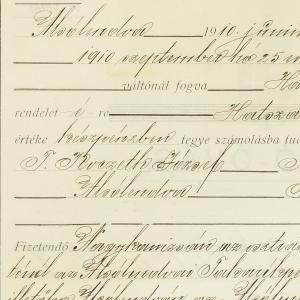 Alsólendva 1910. juni
1910 szeptember hó 25
váltónál fogva Ha
rendelet -é- re Hatszá
értéke készpénzben tegye számolásba tud
T. József
Alsólendva
Fizetendő Nagykanizsán az
az Alsólendvai Takarékp